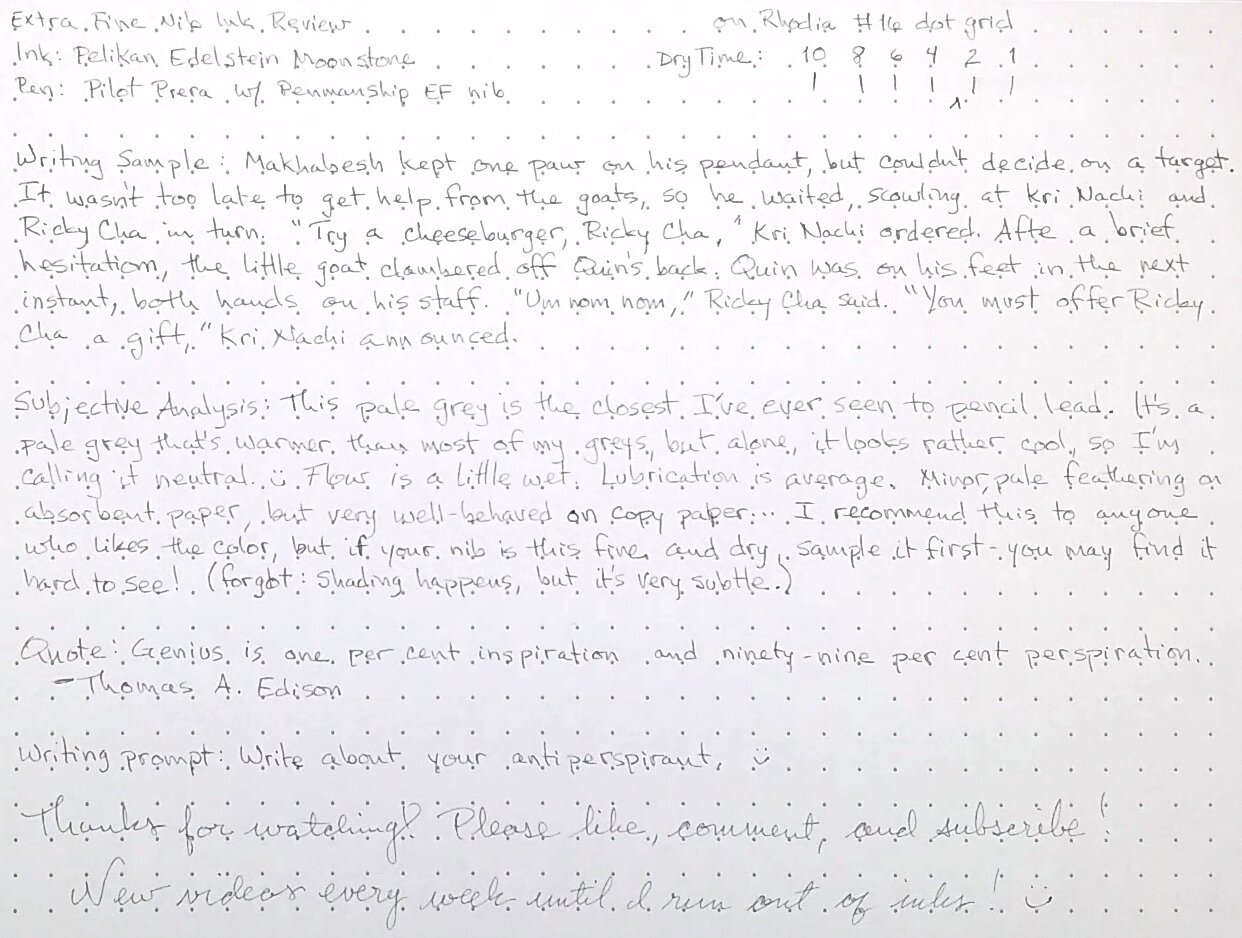 Extra Fine Nib Ink Review on Rhodia #16 dot grid
Ink: Pelikan Edelstein Moonstone Dry Time: 10 8 6 4 2 1
Pen: Pilot Prera w/ Penmanship EF nib
Writing Sample: Makhabesh kept one paw on his pendant, but couldn't decide on a target.
It wasn't too late to get help from the goats, so he waited, scowling at Kri Nachi and
Ricky Cha in turn. "Try a cheeseburger, Ricky Cha," Kri Nachi ordered. Afte a brief
hesitation, the little goat clambered off Quin's back. Quin was on his feet in the next
instant, both hands on his staff. "Um nom nom," Ricky Cha said. "You must offer Ricky
Cha a gift," Kri Nachi announced.
Subjective Analysis: This pale grey is the closest I've ever seen to pencil lead. It's a
pale grey that's warmer than most of my greys, but alone, it looks rather cool, so I'm
calling it neutral. :) Flow is a little wet. Lubrication is average. Minor, pale feathering on
absorbent paper, but very well-behaved on copy paper... I recommend this to anyone
who likes the color, but if your nib is this fine and dry, sample it first - you may find it
hard to see! (forgot: Shading happens, but it's very subtle.)
Quote: Genius is one per cent inspiration and ninety-nine per cent perspiration.
- Thomas A. Edison
Writing prompt: Write about your antiperspirant. :)
Thanks for watching! Please like, comment, and subscribe!
New videos every week until I run out of inks! :)